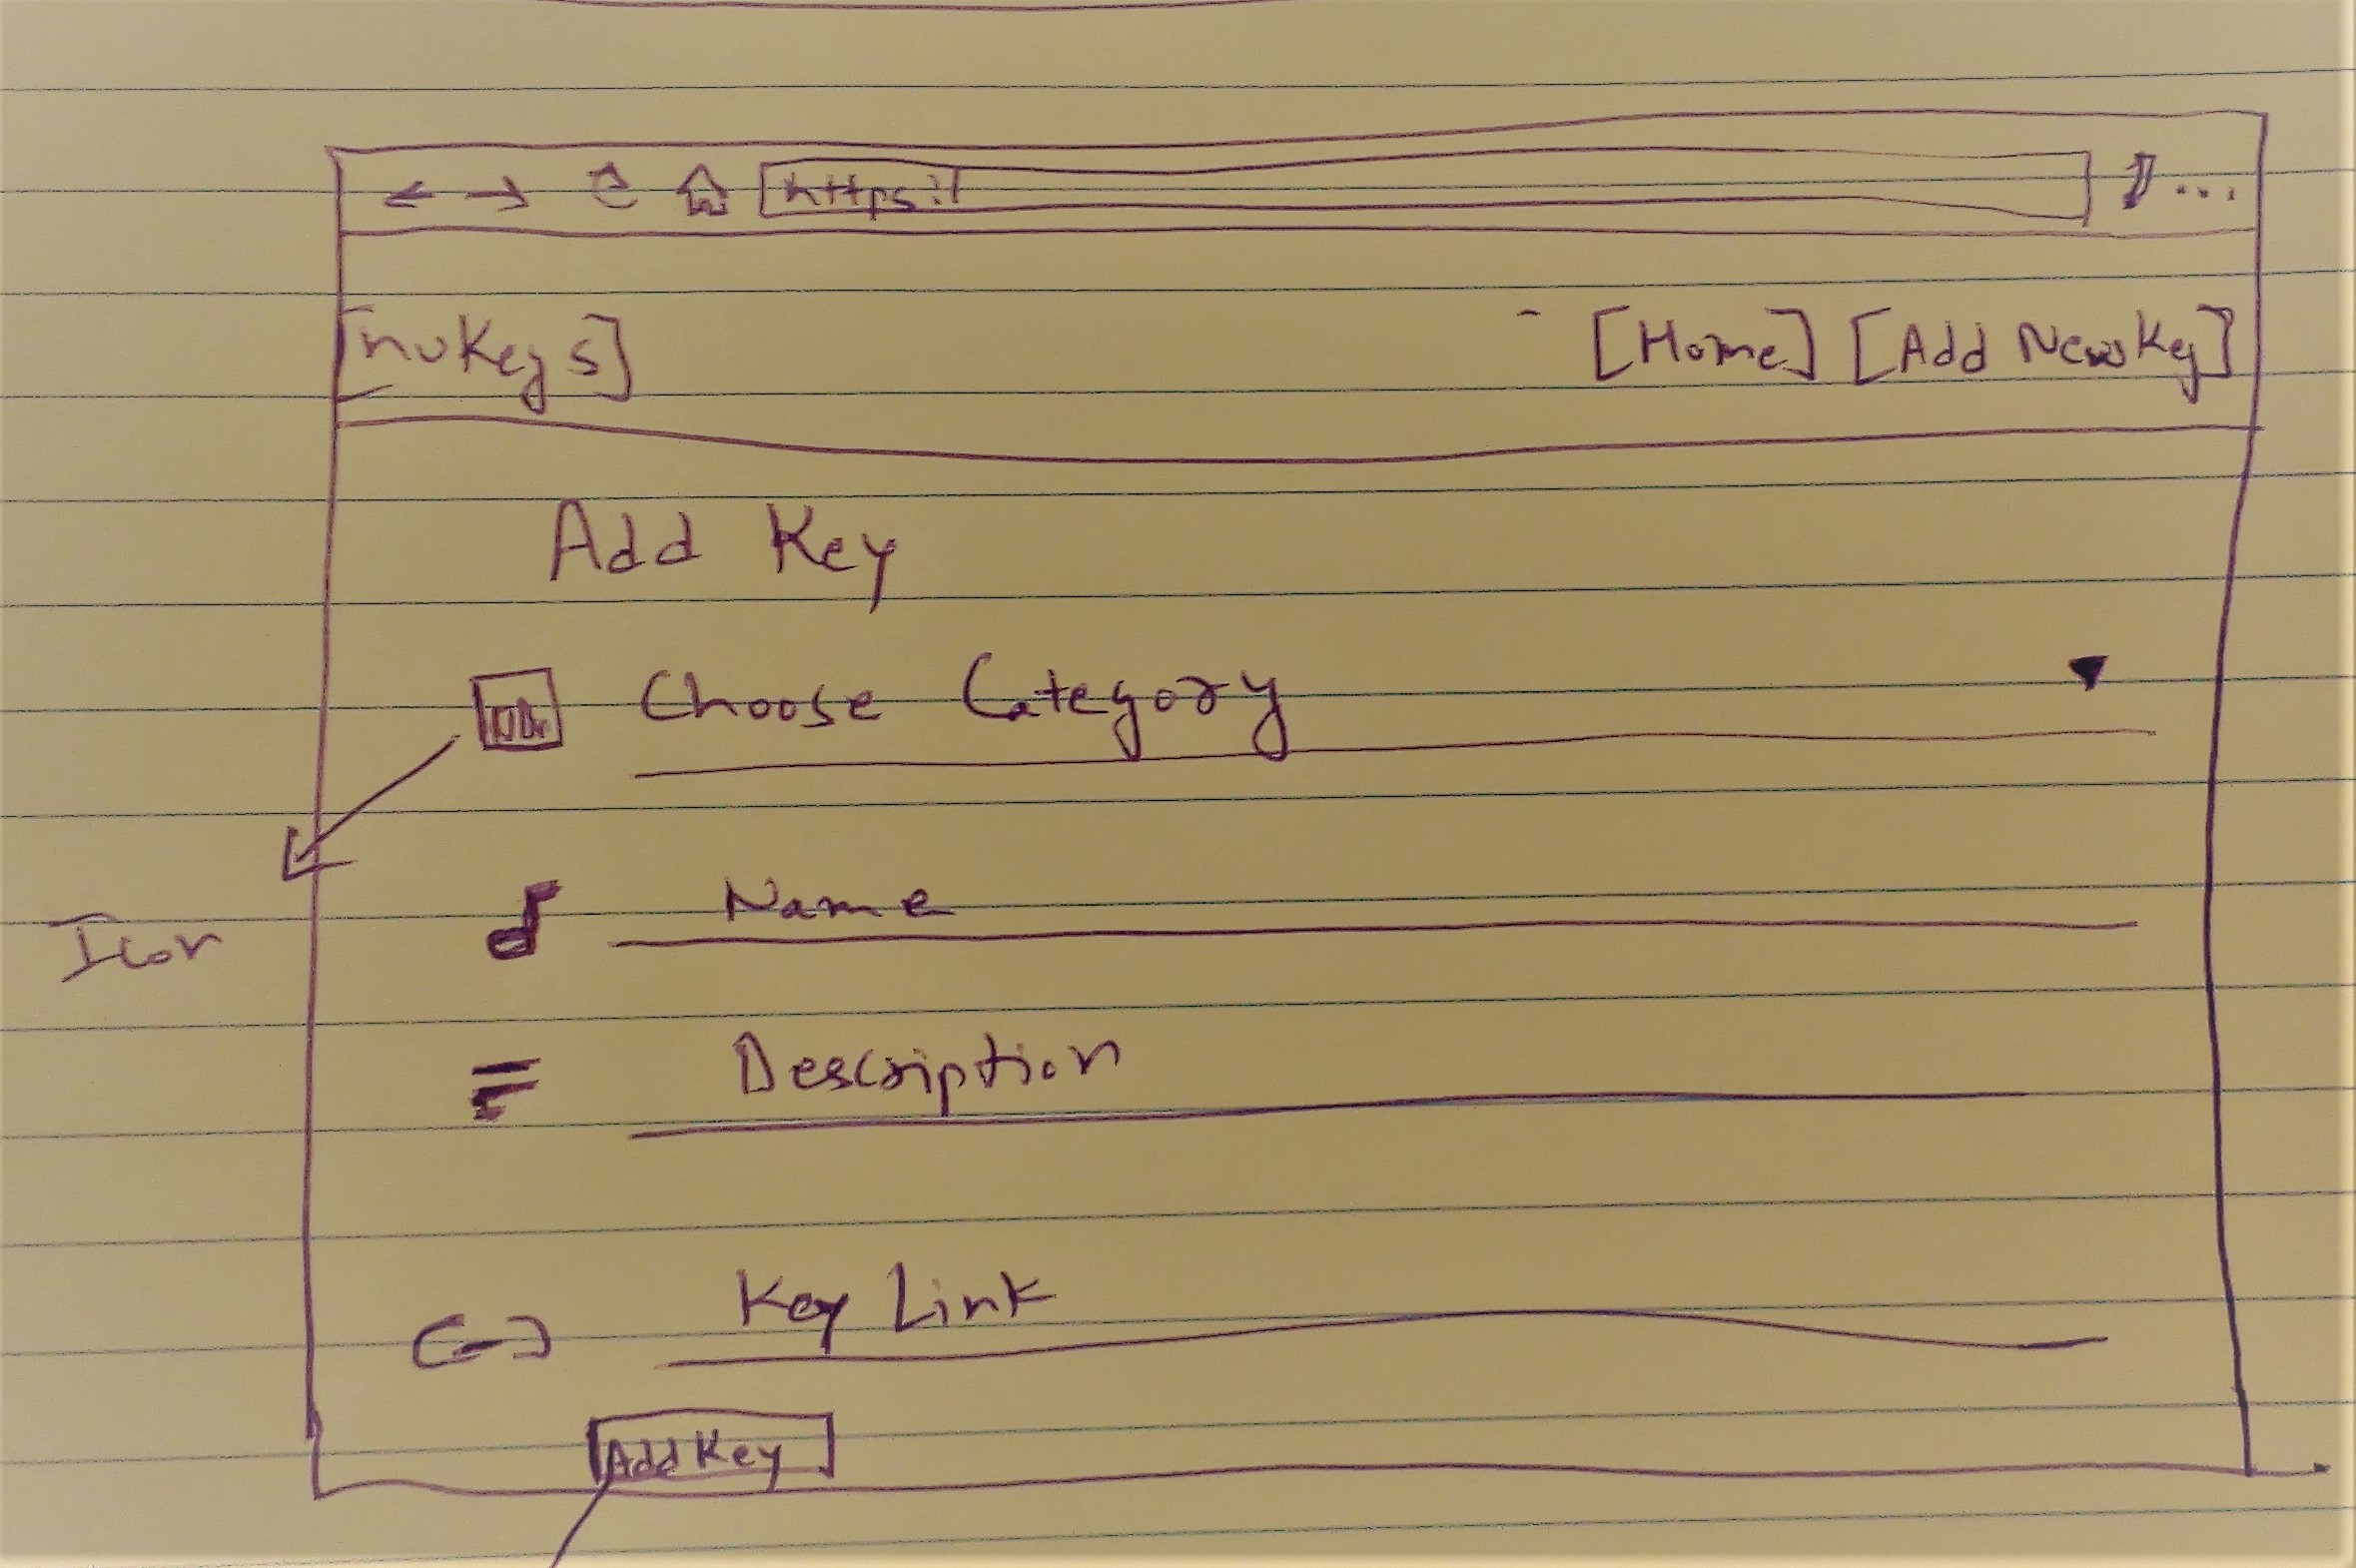 https:/
[nuKeys] [Home] [Add New Key]
Add Key
Choose Category
Name
Icon
Description
Key Link
Add Key